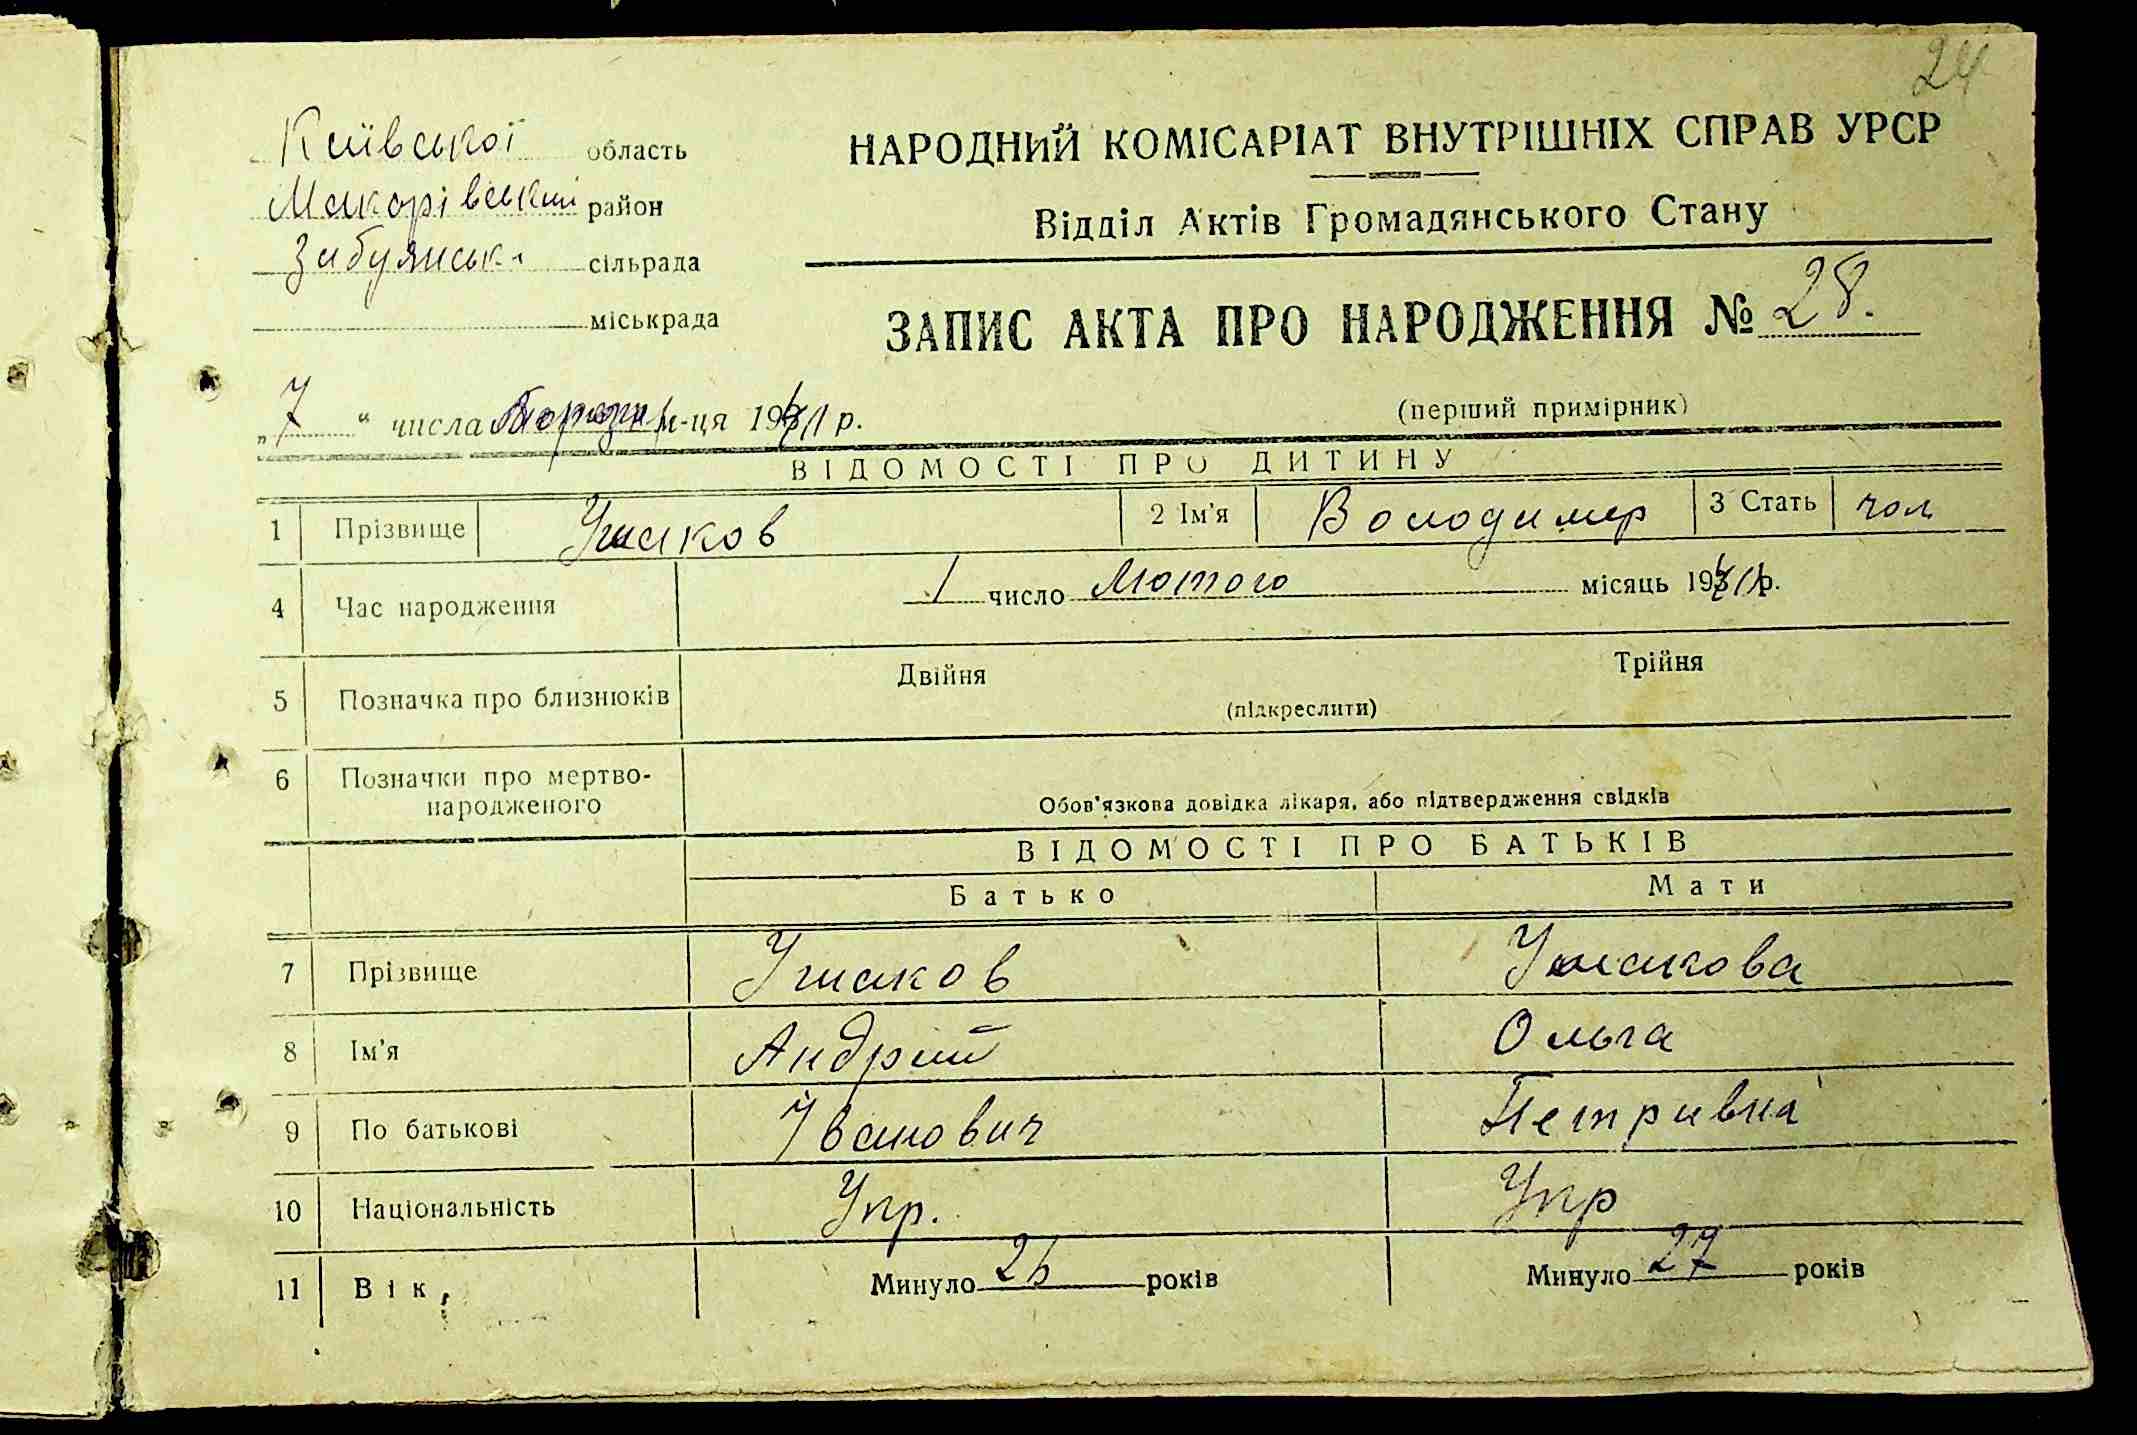 24
Київської область
НАРОДНИЙ КОМІСАРІАТ ВНУТРІШНІХ СПРАВ УРСР
Макарівський район
Відділ Актів Громадянського Стану
Забуянськ сільрада
міськрада
ЗАПИС АКТА ПРО НАРОДЖЕННЯ № 28.
(перший примірник)
„7“ числа м-ця 1941 р.
ВІДОМОСТІ ПРО ДИТИНУ
1 Прізвище Ушаков 2 Ім'я Володимер 3 Стать чол
4 Час народження 1 число Лютого місяць 1941 р.
5 Позначка про близнюків Двійня Трійня
(підкреслити)
6 Позначки про мертво-
народженого
Обов'язкова довідка лікаря, або підтвердження свідків
ВІДОМОСТІ ПРО БАТЬКІВ
Батько Мати
7 Прізвище Ушаков Ушакова
8 Ім'я Андрий Ольга
9 По батькові Іванович Петривна
10 Національність Укр. Укр
11 Вік, Минуло 26 років Минуло 27 років